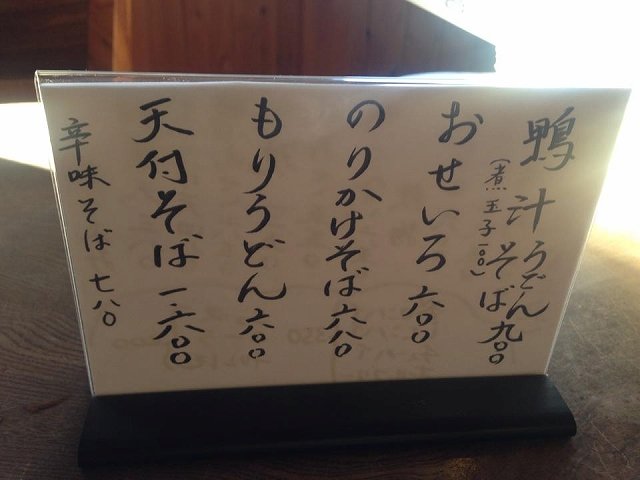 鴨汁うどんそば 九〇〇
(煮玉子一〇〇)
おせいろ 六〇〇
のりかけそば 六八〇
もりうどん 六〇〇
天付そば 一、六〇〇
辛味そば 七八〇